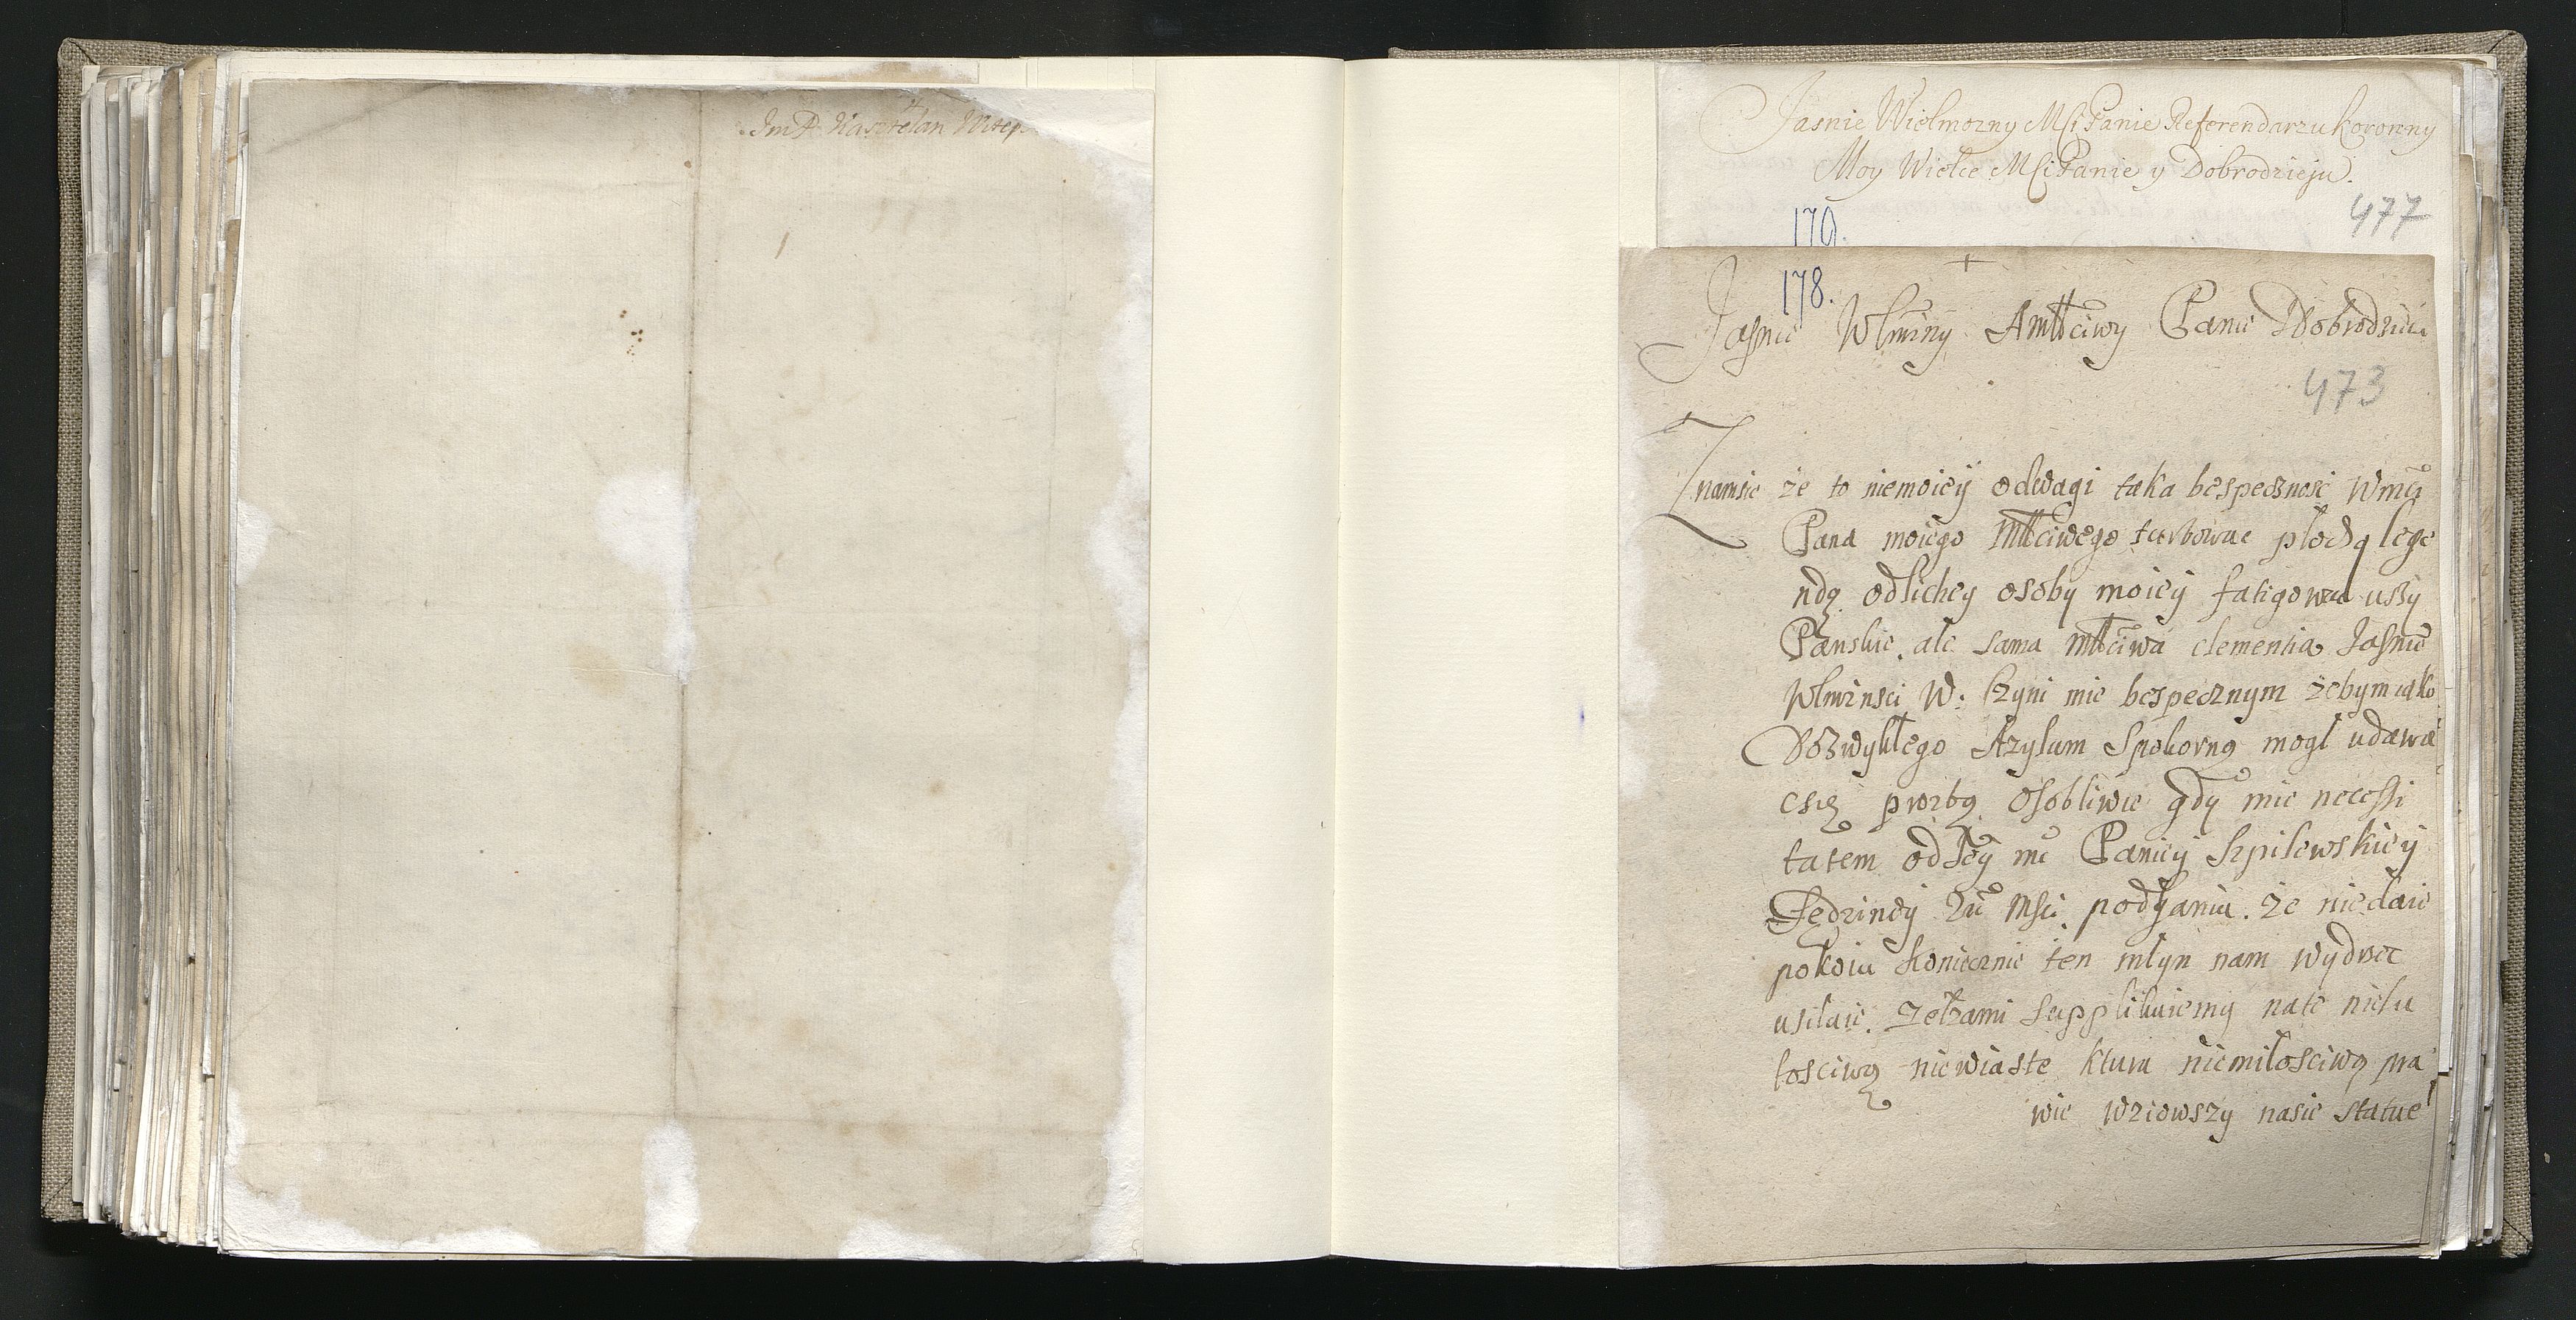 Im P. Kasztelan Witep
Jasnie Wielmozny Msci Panie Referendarzu Koronny
Moy Wielce Msci Panie y Dobrodzieju.
477
179.
178.
Jasnie Wlmżny A młtciwy Panie Dobrodzieiu
473
Znamsie że to niemoieÿ odwagi taka bespecznosć Wmci
Pana moiego Młtciwego turbowac płochą lege
ndą odlichey osoby moieÿ fatigować uszy
Panskie. ale sama młtciwa clementia Jasnie
Wlmżnsci W: czyni mie bespecznym żebym iako
Dozwykłego Azylum Spokorną mogl udawa
csię prozbą osobliwie gdy mie necessi
tatem odJey mc Panieÿ Szpilewskieÿ
Sędzineÿ Zie Msci podyania. że niedaie
pokoiu koniecznie ten młyn nam wydrzec
usiluie. Zełzami supplikuiemy nate nielu
tosciwą niewiaste ktura niemiłosciwą pra
wie wziowszy nasie statue